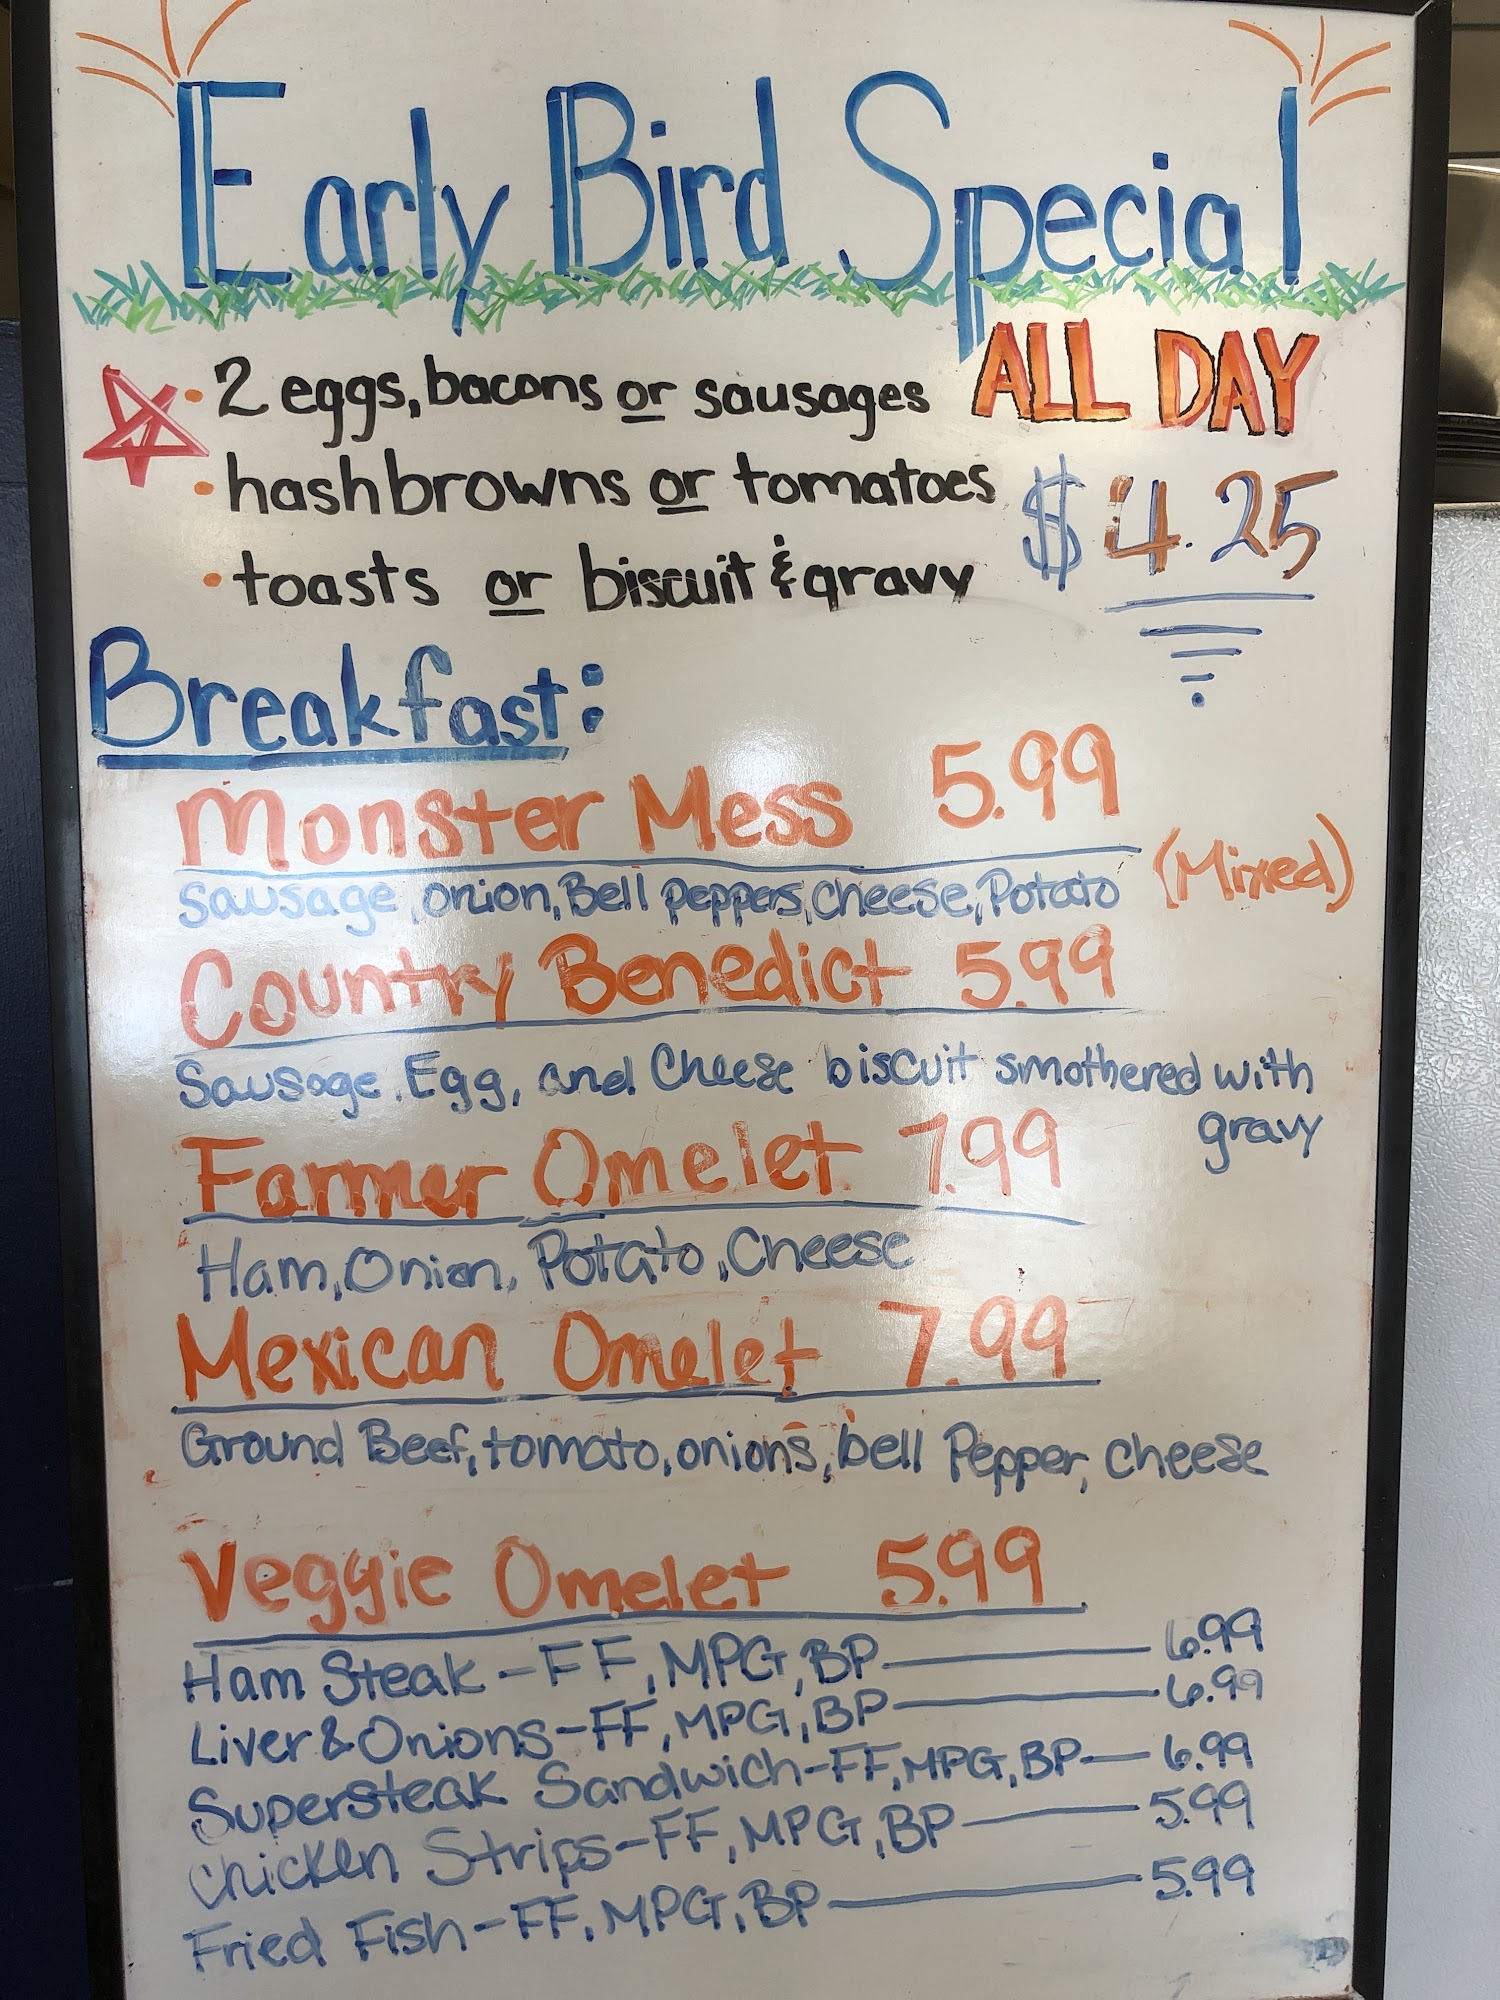 Early Bird Special
ALL DAY
• 2 eggs, bacons or sausages
• hashbrowns or tomatoes
$4.25
• toasts or biscuit & gravy
Breakfast:
Monster Mess 5.99
Sausage, onion, Bell peppers, cheese, Potato (Mixed)
Country Benedict 5.99
Sausage, Egg, and Cheese biscuit smothered with
gravy
Farmer Omelet 7.99
Ham, Onion, Potato, Cheese
Mexican Omelet 7.99
Ground Beef, tomato, onions, bell Pepper, cheese
Veggie Omelet 5.99
Ham Steak - FF, MPG, BP 6.99
Liver & Onions - FF, MPG, BP 6.99
Supersteak Sandwich - FF, MPG, BP 6.99
Chicken Strips - FF, MPG, BP 5.99
Fried Fish - FF, MPG, BP 5.99